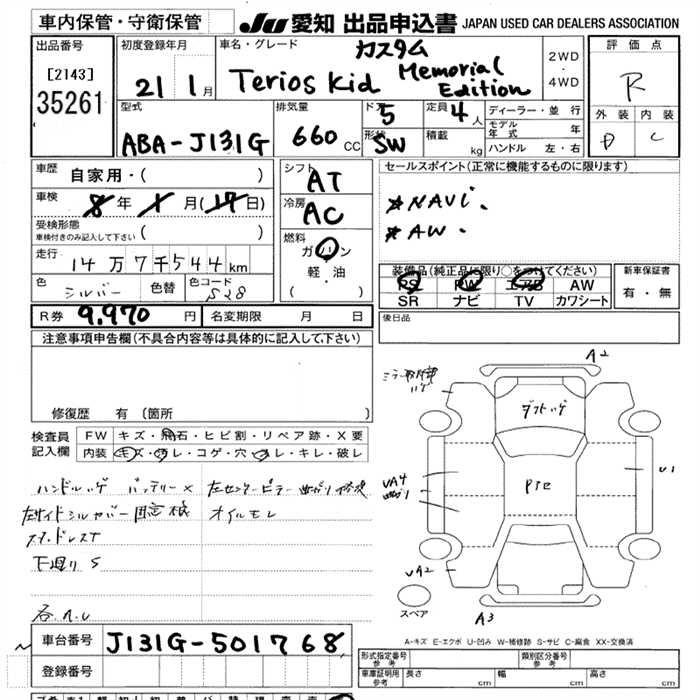 車内保管・守衛保管
JU 愛知 出品申込書 JAPAN USED CAR DEALERS ASSOCIATION
出品番号
[2143]
35261
初度登録年月
21 1月
車名・グレード
カスタム
Terios Kid Memorial Edition
2WD
・
4WD
評価点
R
外装 内装
D C
型式
ABA-J131G
排気量
660 CC
ドア 5
形状 SW
定員 4人
積載 kg
ディーラー・並行
モデル年式 年
ハンドル 左・右
車歴
自家用・( )
車検
8年 1月(17日)
受検形態
車検付きのみ記入して下さい ( )
走行
14万7千544km
色 シルバー 色替 色コード S28
シフト AT
冷房 AC
燃料
ガソリン
軽・油
( )
セールスポイント(正常に機能するものに限ります)
*NAVi.
*AW.
装備品(純正品に限り○をつけてください)
PS PW エアB AW
SR ナビ TV カワシート
新車保証書
有・無
R券 9,970円 名変期限 月 日
後日品
注意事項申告欄(不具合内容等は具体的に記入して下さい)
修復歴 有(箇所
検査員記入欄
FW キズ・飛石・ヒビ割・リペア跡・X要
内装 キズ・ヨレ・コゲ・穴・スレ・キレ・破レ
ハンドルハゲ バッテリーX 左センターピラー曲がり修復
オイルモレ
下廻りS
A2
ダフトハゲ
U1
UA4
UA2
A3
スペア
A-キズ E-エクボ U-凹み W-補修跡 S-サビ C-腐食 XX-交換済
車台番号 J131G-501768
登録番号
形式指定番号 参考
類別区分番号 参考
車庫証明用 参考 長さ cm 幅 cm 高さ cm